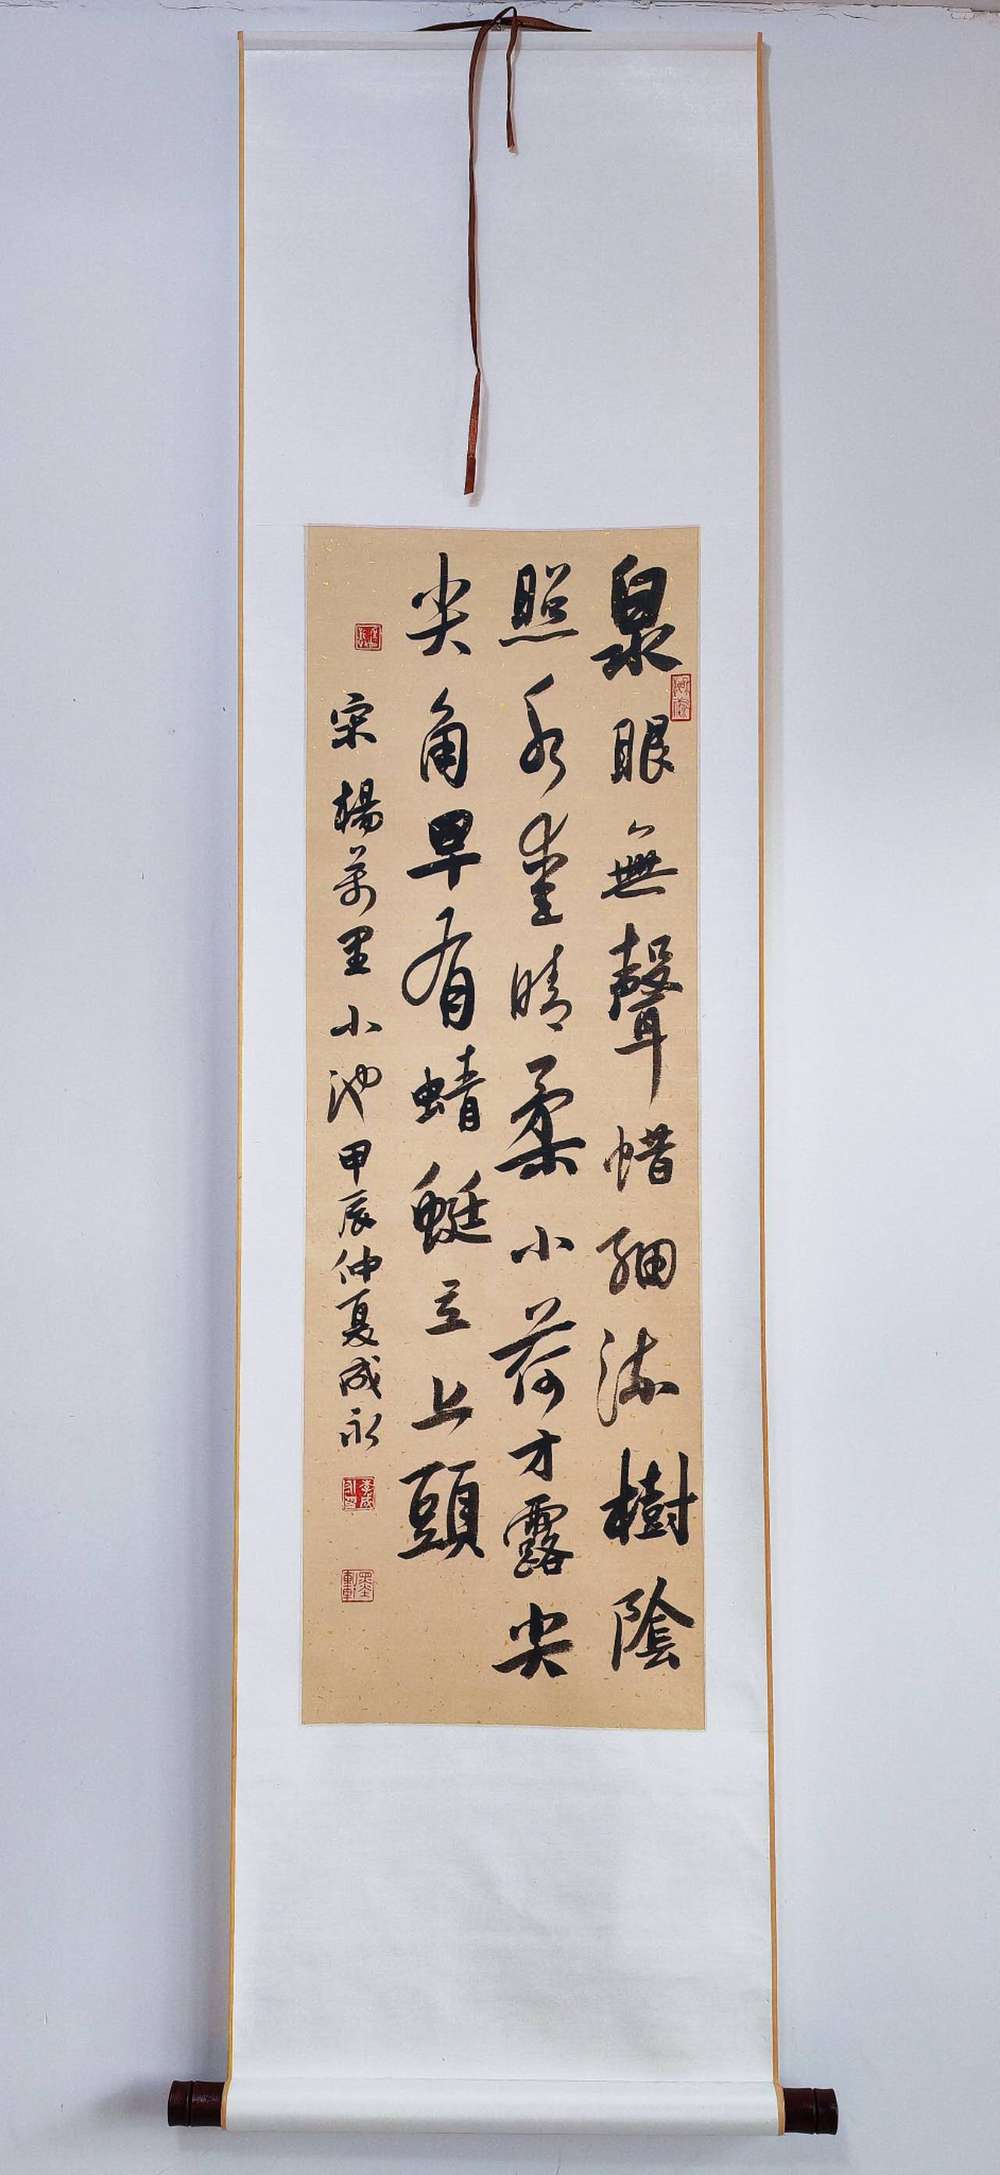 泉眼無聲惜細流樹陰
照水愛晴柔小荷才露尖
尖角早有蜻蜓立上頭
宋楊萬里小池甲辰仲夏成永